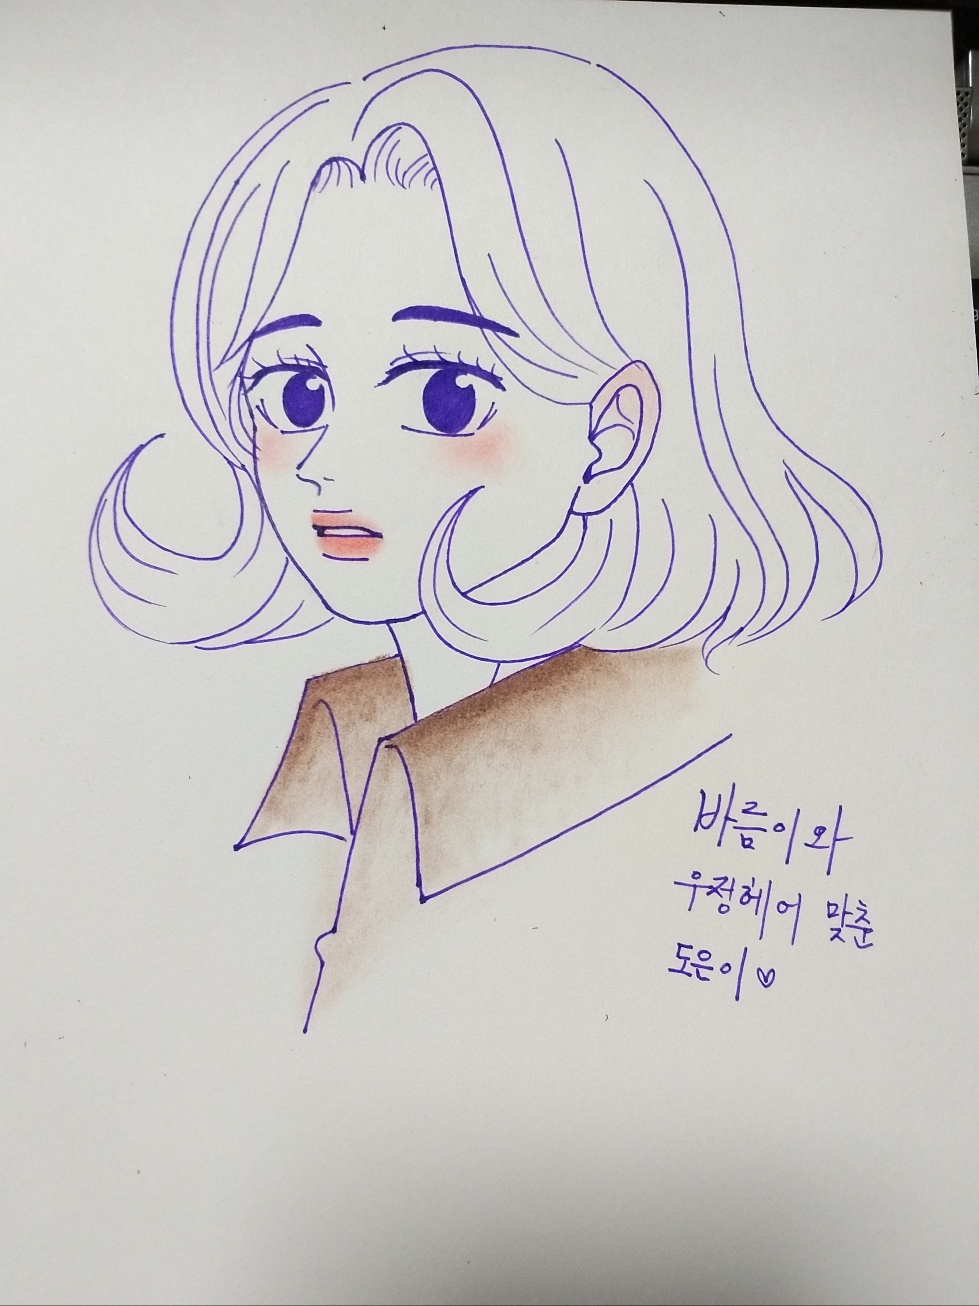 바름이와
우정헤어 맞춘
도은이♡